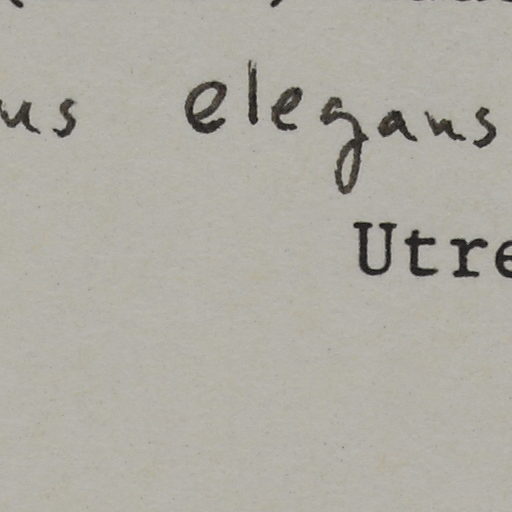 us elegans
Utre